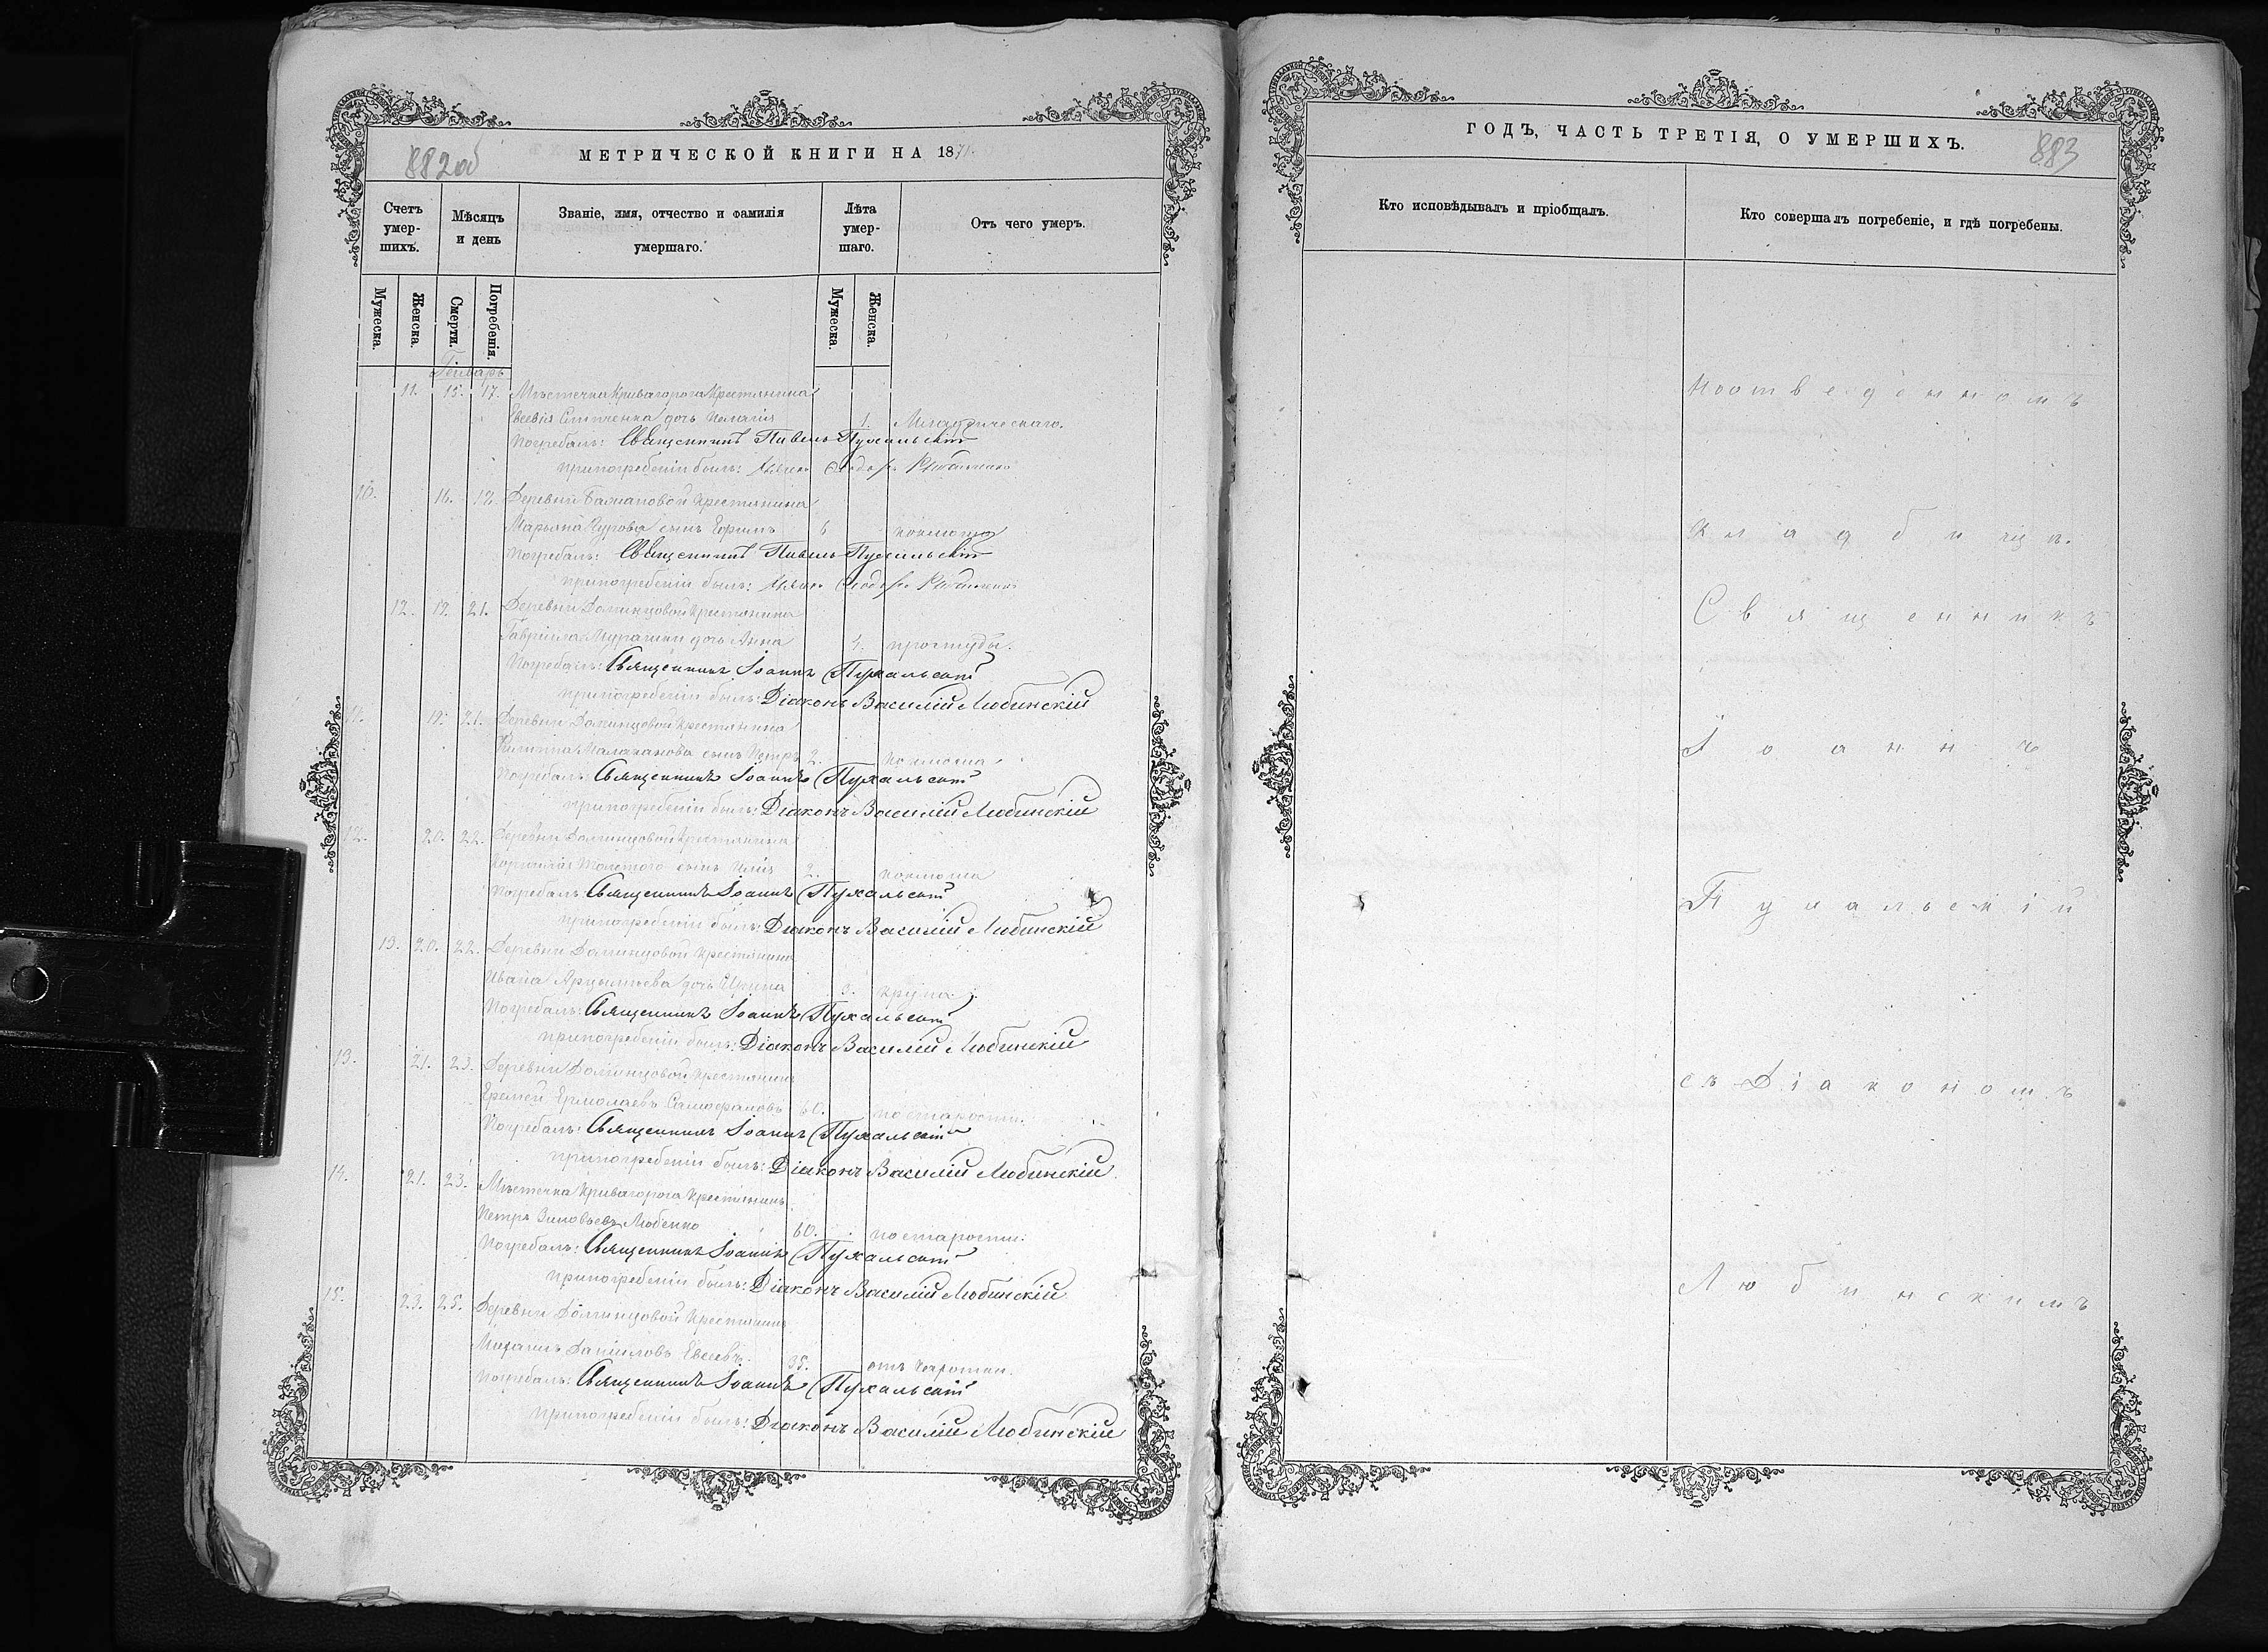 882об
МЕТРИЧЕСКОЙ КНИГИ НА 1871.
Счетъ умер-шихъ.
Мѣсяцъ и день
Званіе, имя, отчество и фамилія умершаго.
Лѣта умер-шаго.
Отъ чего умеръ.
Мужеска.
Женска.
Смерти.
Погребенія.
Мужеска.
Женска.
Генварь
11. 15. 17. Мѣстечка Кривагорога Крестянина
дочь Пелагія 1. Младенческаго.
Погребалъ: Священникъ Павелъ
при погребеніи былъ:
10. 16. 17. Деревни Крестянина
сынъ Ефимъ 6 коклюша
Погребалъ: Священникъ Павелъ
при погребеніи былъ:
12. 19. 21. Деревни Долинцовой Крестянина
Гавріила дочь Анна 4. простуды.
Погребалъ: Священникъ Іоаннъ Пухальскій
при погребеніи былъ: Діаконъ Василій Любинскій
11. 19. 21. Деревни Долинцовой Крестянина
Филиппа Малаханова сынъ Петръ 2. коклюша
Погребалъ: Священникъ Іоаннъ Пухальскій
при погребеніи былъ: Діаконъ Василій Любинскій
12. 20. 22. Деревни Долинцовой Крестянина
Корнилія Толстого сынъ Илія 2. коклюша
Погребалъ: Священникъ Іоаннъ Пухальскій
при погребеніи былъ: Діаконъ Василій Любинскій
13. 20. 22. Деревни Долинцовой Крестянина
Ивана дочь Ирина 3. крупа.
Погребалъ: Священникъ Іоаннъ Пухальскій
при погребеніи былъ: Діаконъ Василій Любинскій
13. 21. 23. Деревни Долинцовой Крестянинъ
Еремей Ермолаевъ 60. по старости.
Погребалъ: Священникъ Іоаннъ Пухальскій
при погребеніи былъ: Діаконъ Василій Любинскій
14. 21. 23. Мѣстечка Кривагорога Крестянинъ
Петръ Зиновьевъ Любенко 60. по старости.
Погребалъ: Священникъ Іоаннъ Пухальскій
при погребеніи былъ: Діаконъ Василій Любинскій
15. 23. 25. Деревни Долинцовой Крестянинъ
Михаилъ Даниловъ Евсеевъ. 35. отъ чахотки.
Погребалъ: Священникъ Іоаннъ Пухальскій
при погребеніи былъ: Діаконъ Василій Любинскій
ГОДЪ, ЧАСТЬ ТРЕТІЯ, О УМЕРШИХЪ.
883
Кто исповѣдывалъ и пріобщалъ.
Кто совершалъ погребеніе, и гдѣ погребены.
На отведенномъ
кладбищѣ.
Священникъ
Іоаннъ
Пухальскій
съ Діакономъ
Любинскимъ